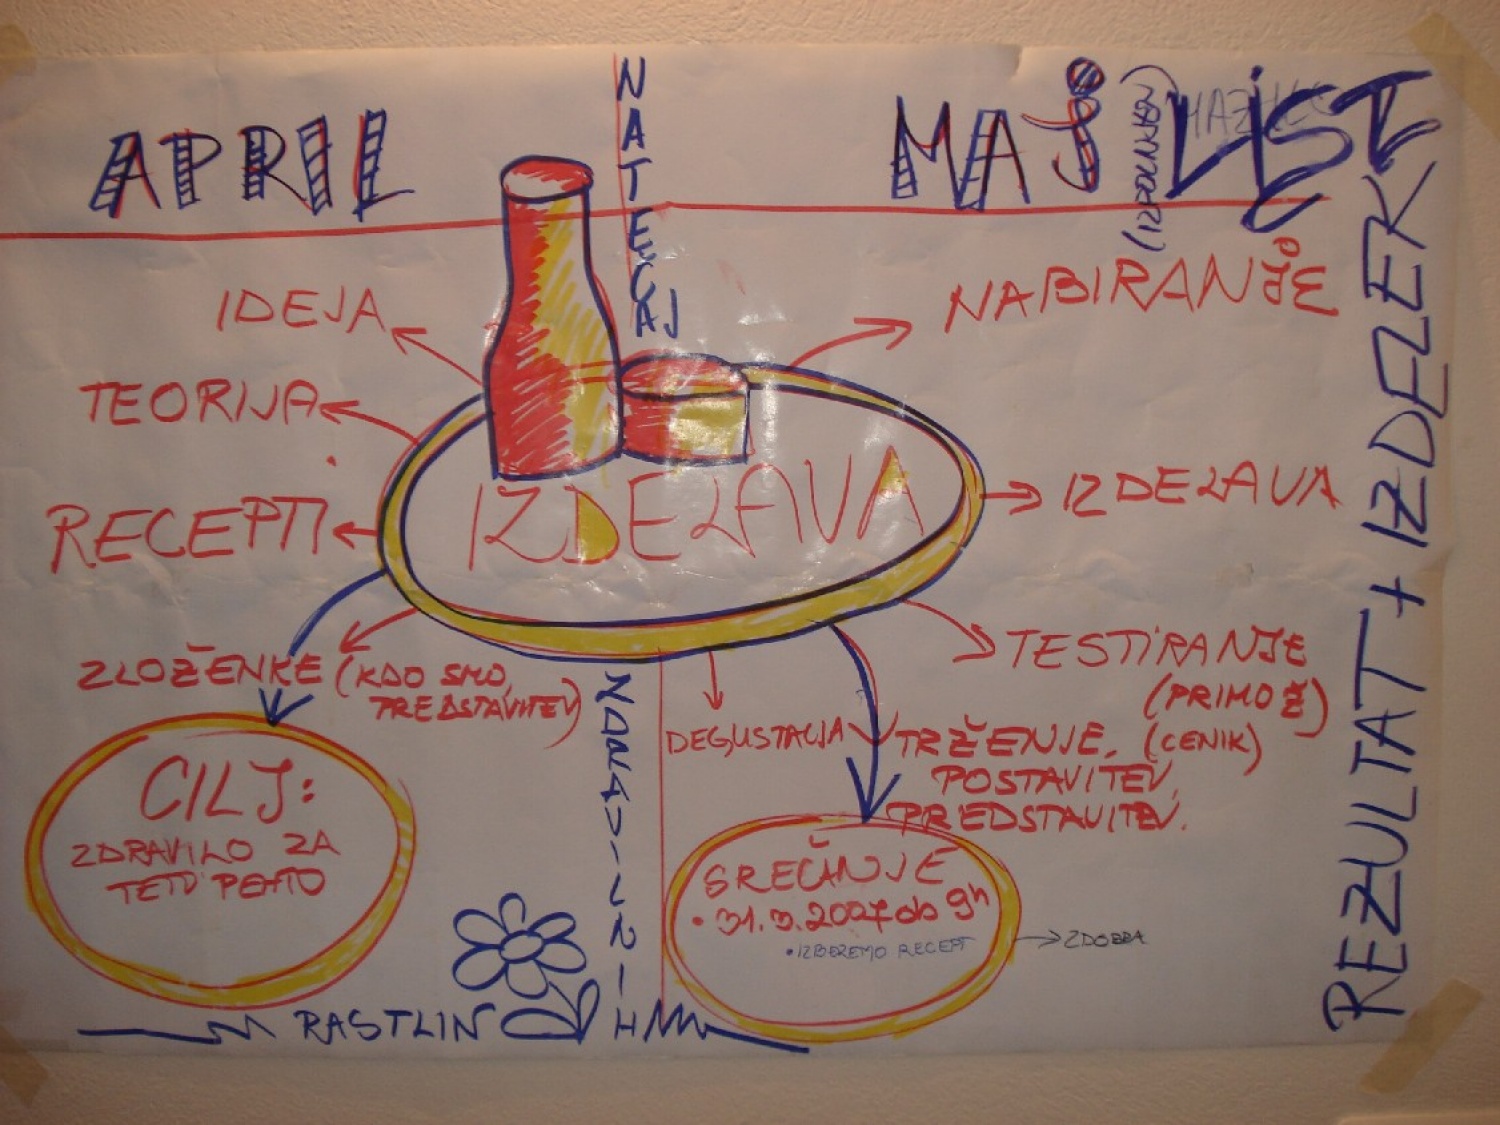 APRIL
NATEČAJ
MAJ
(IZPOLNJEN)
LIST
IDEJA
TEORIJA
RECEPTI
ZLOŽENKE (KDO SMO,
PREDSTAVITEV)
IZDELAVA
NABIRANJE
IZDELAVA
TESTIRANJE
(PRIMOŽ)
DEGUSTACIJA
TRŽENJE, (CENIK)
POSTAVITEV,
PREDSTAVITEV.
CILJ:
ZDRAVILO ZA
TETO PEHTO
SREČANJE
• 31.3.2007 ob 9h
• IZBEREMO RECEPT
ZDRAVILNIH
RASTLIN
REZULTAT + IZDELEK